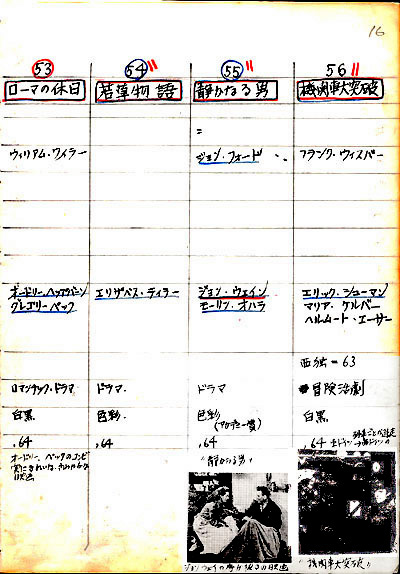 16
53
ローマの休日
ウィリアム・ワイラー
オードリー・ヘップバーン
グレゴリー・ペック
ロマンチック・ドラマ
白黒
,64
54
若草物語
エリザベス・テイラー
ドラマ
色彩
,64
55
静かなる男
=
ジョン・フォード
ジョン・ウェイン
モーリン・オハラ
ドラマ
色彩
,64
"静かなる男"
56
機関車大突破
フランク・ウィスバー
エリック・シューマン
マリア・ケルバー
ヘルムート・エーサー
西独=63
冒険活劇
白黒
,64
"機関車大突破"